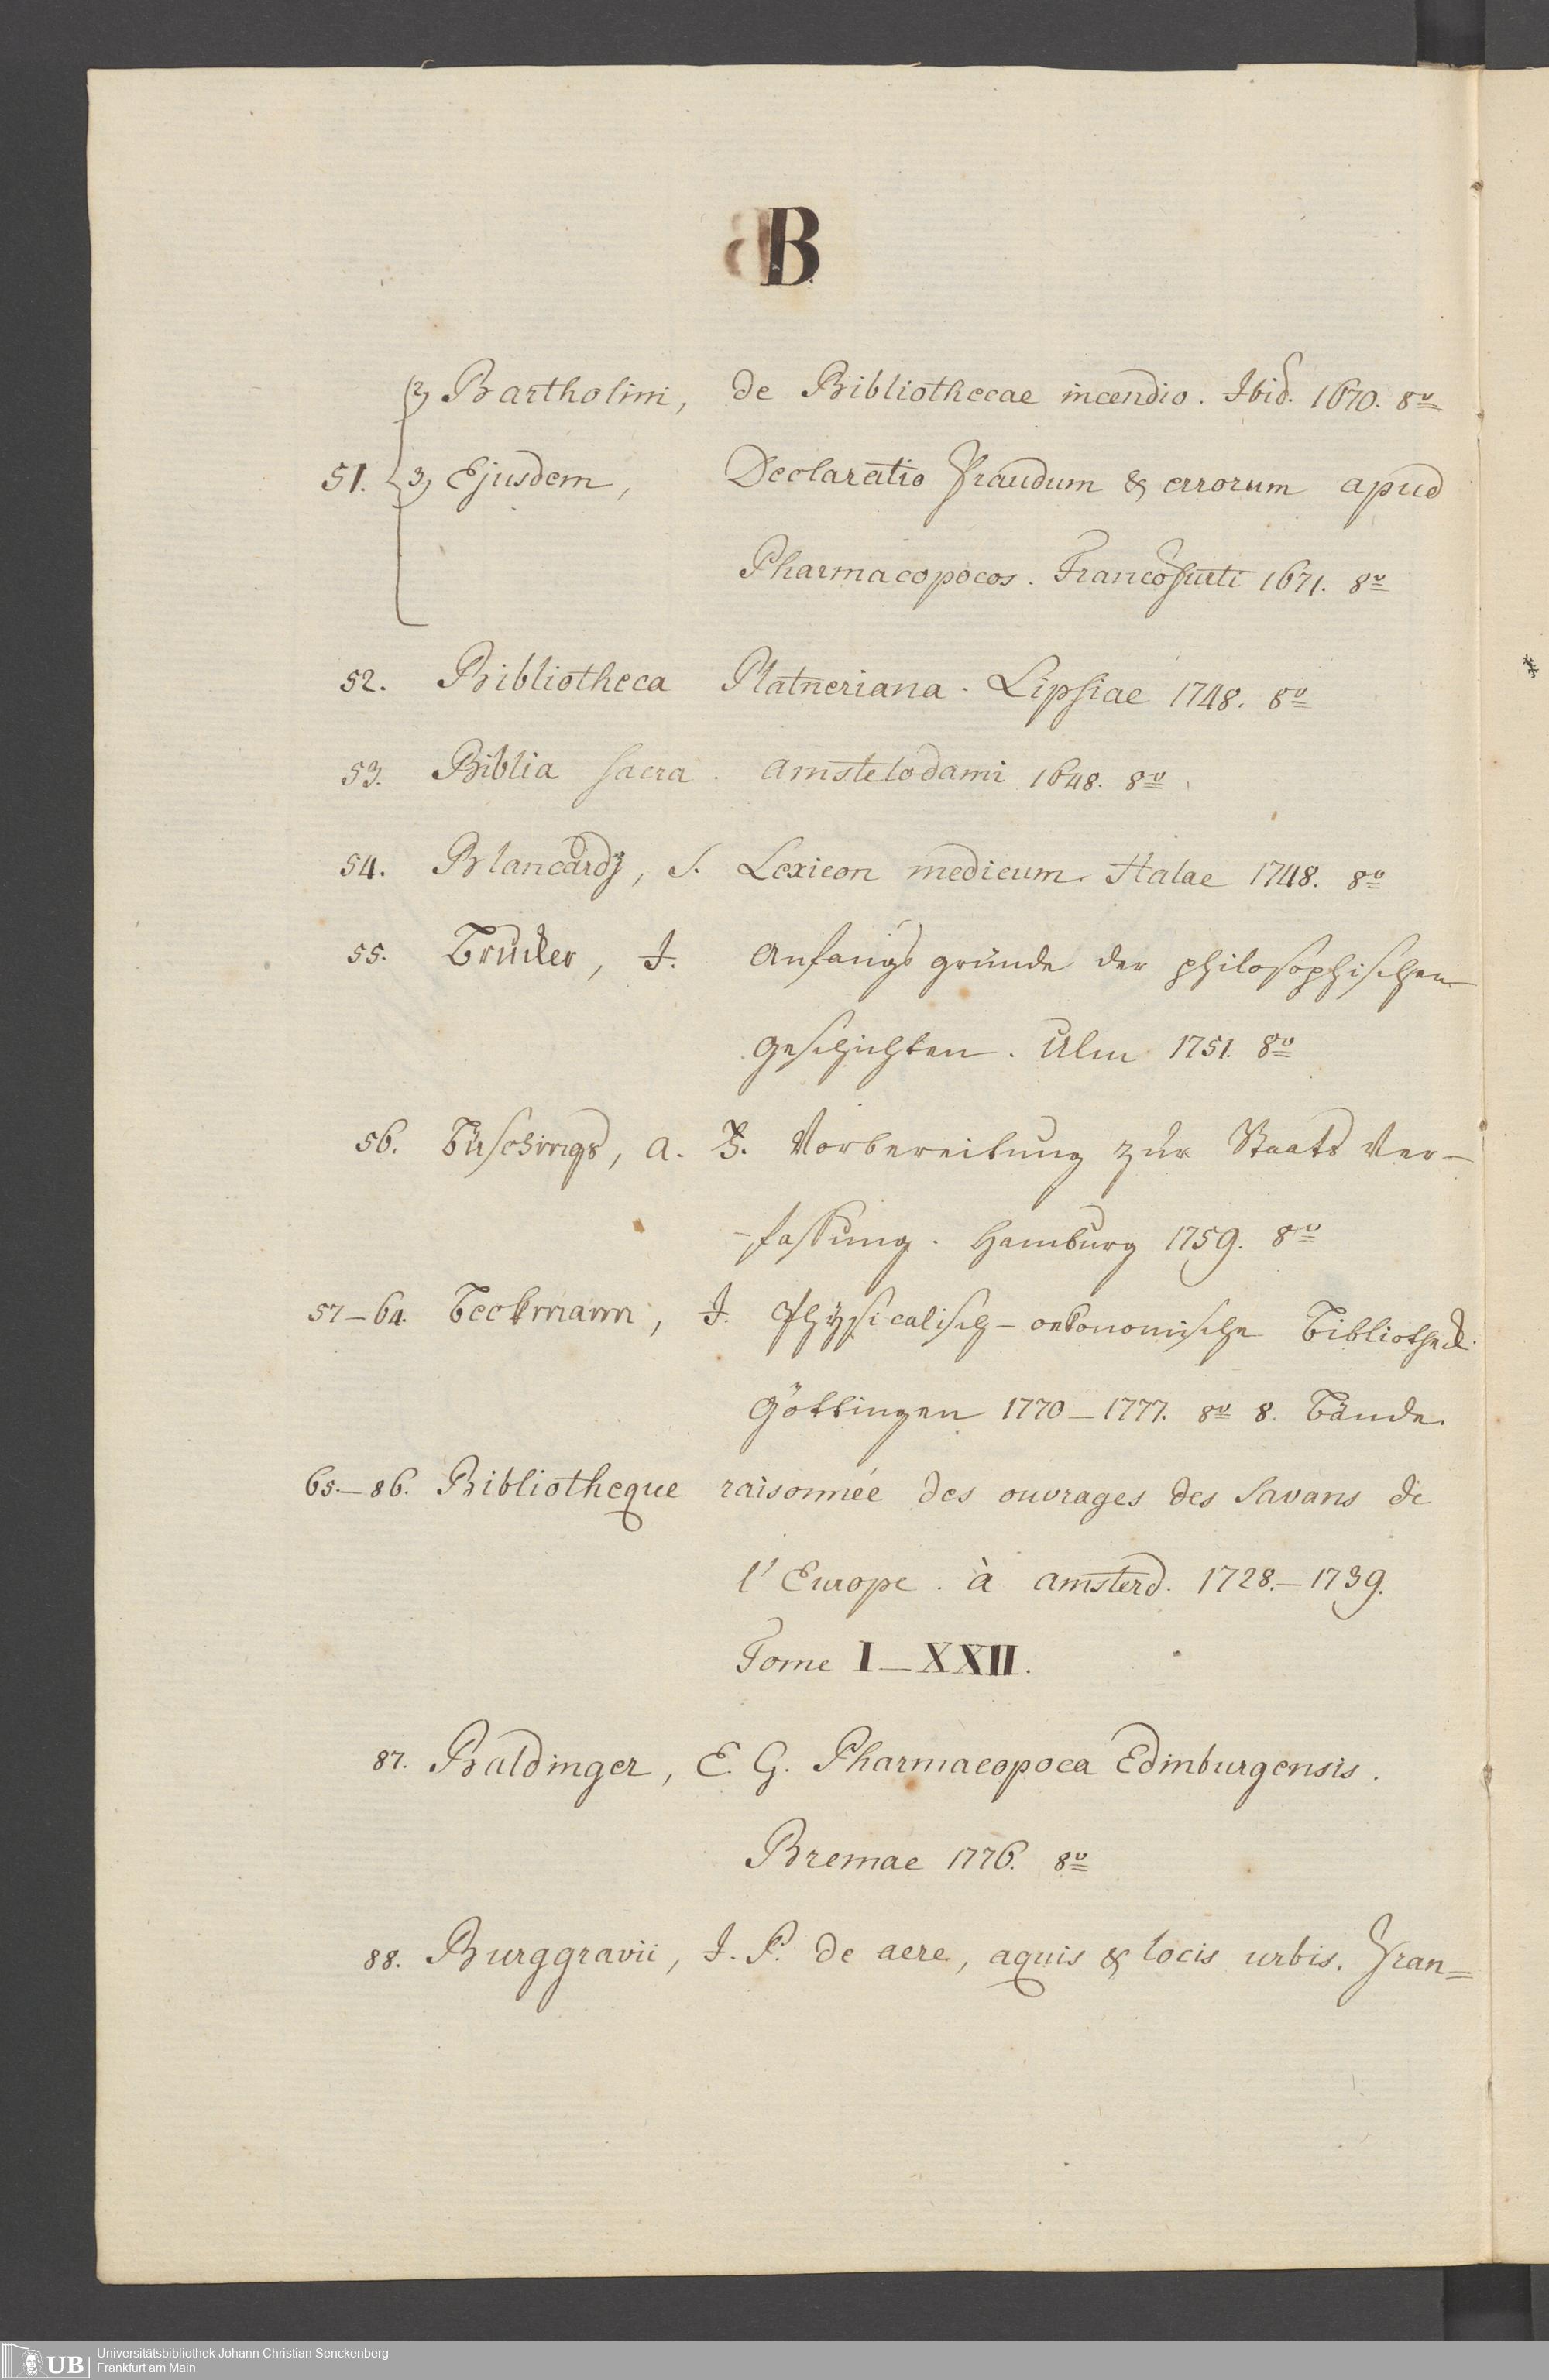 B
2) Bartholini, de Bibliothecae incendio. Ibid. 1670. 8º
51. 3) Ejusdem, Declaratio fraudum & errorum apud
Pharmacopoeos. Francofurti 1671. 8º
52. Bibliotheca Platneriana. Lipsiae 1748. 8º
53. Biblia sacra. Amstelodami 1648. 8º
54. Blancardj, S. Lexicon medicum. Halae 1748. 8º
55. Brucker, J. Anfangs gründe der philosophischen
Geschichten. Ulm 1751. 8º
56. Büschings, A. F. Vorbereitung zur Staats Ver-
-fassung. Hamburg 1759. 8º
57-64. Beckmann, J. Physicalisch-oekonomische Bibliotheck.
Göttingen 1770-1777. 8º 8. Bände.
65.-86. Bibliotheque raisonnée des ouvrages des Savans de
l'Europe. à Amsterd. 1728.-1739.
Tome I-XXII.
87. Baldinger, E. G. Pharmacopoea Edinburgensis.
Bremae 1776. 8º
88. Burggravii, J. P. de aere, aquis & locis urbis. Fran=
UB Universitätsbibliothek Johann Christian Senckenberg
Frankfurt am Main